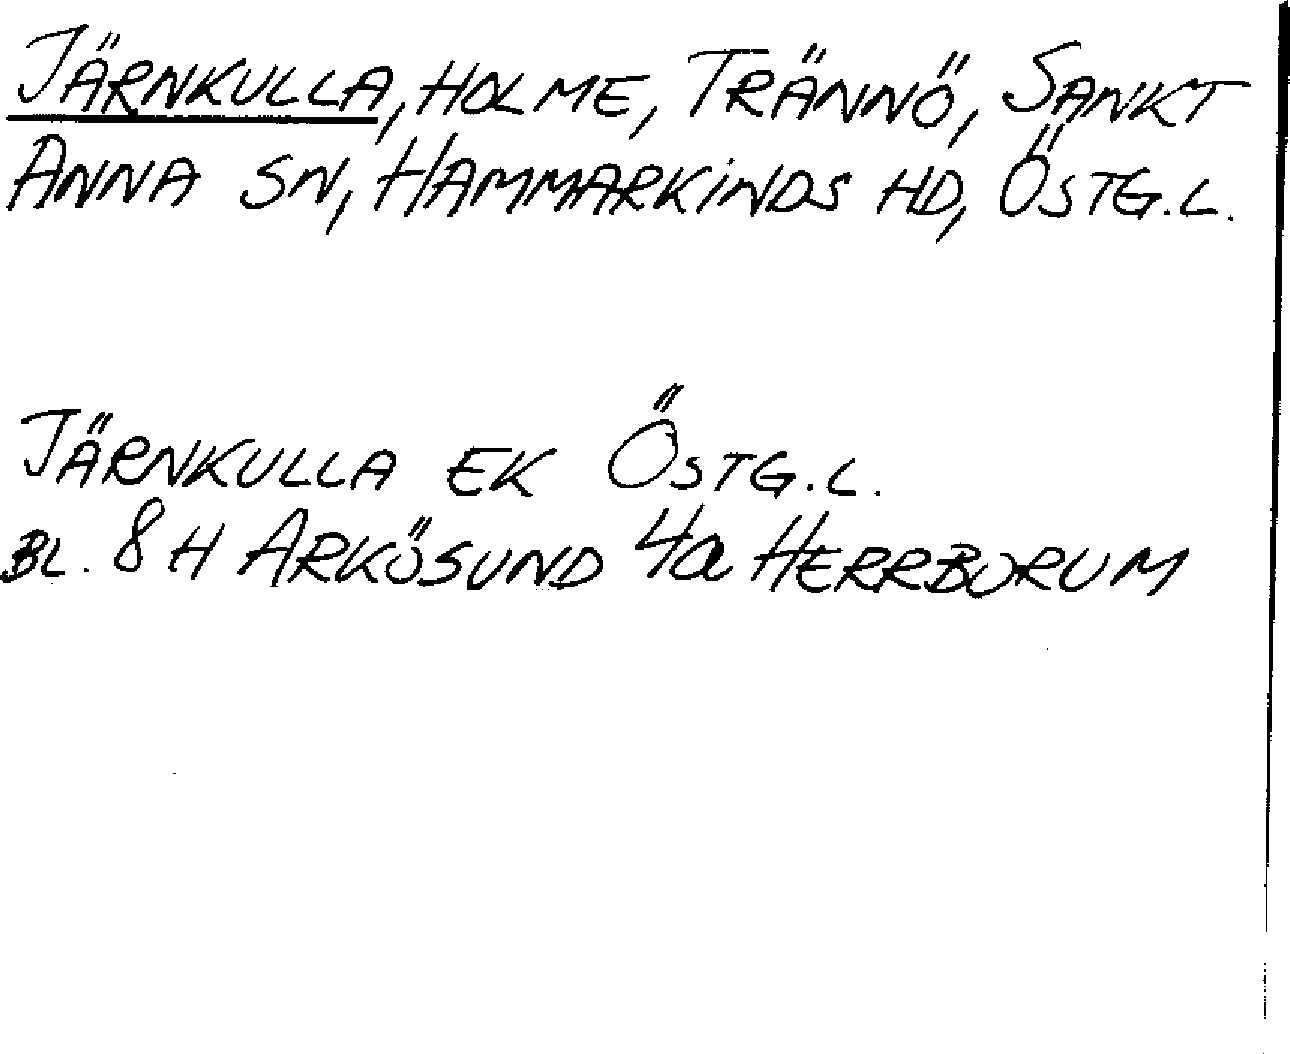 JÄRNKULLA, HOLME, TRÄNNÖ, SANKT
ANNA SN, HAMMARKINDS HD, ÖSTG.L.
JÄRNKULLA EK ÖSTG.L.
BL. 8H ARKÖSUND 4a HERRBORUM